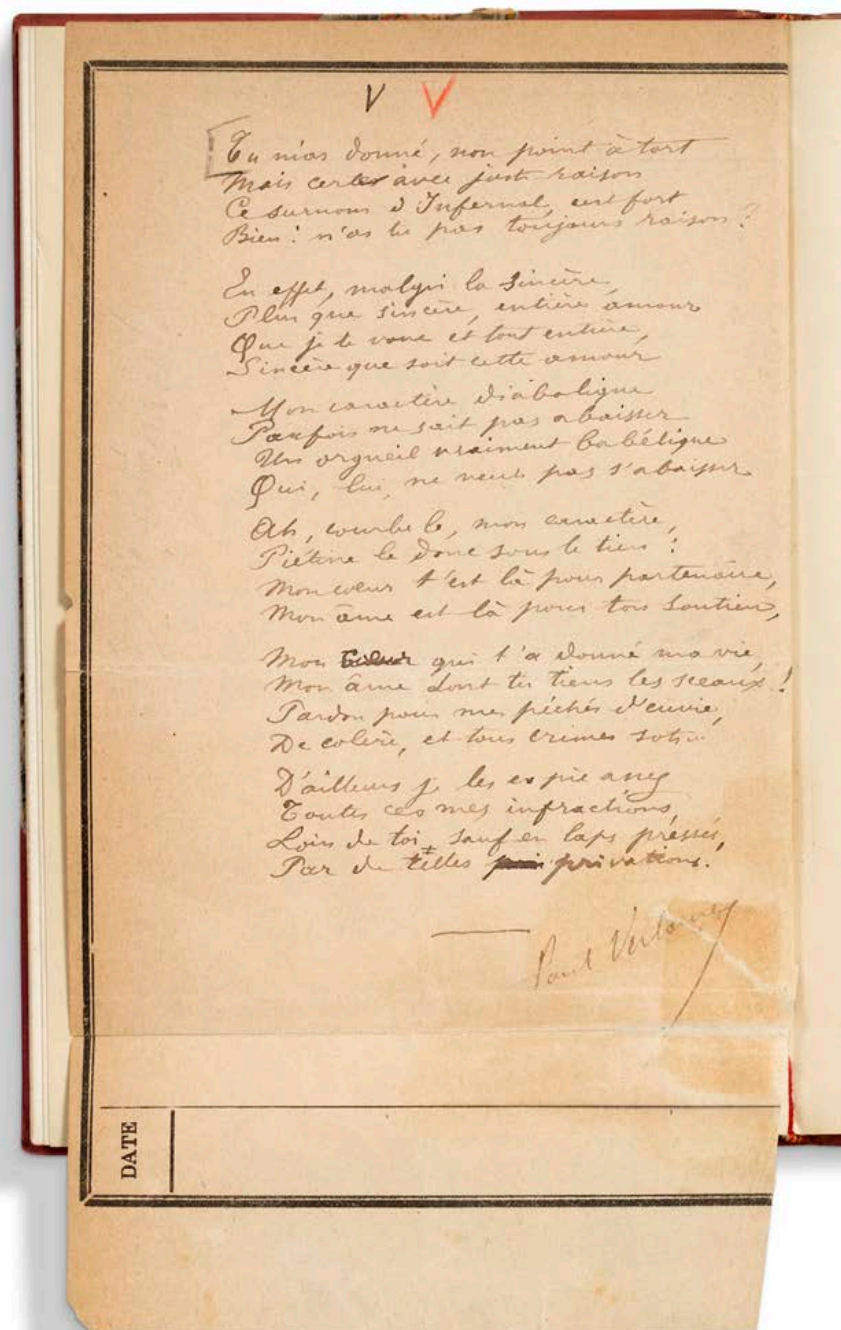 V V
Tu m'as donné, non point à tort
Mais certes avec juste raison
Ce surnom d'Infernal, c'est fort
Bien ! n'as tu pas toujours raison ?
En effet, malgré la sincère,
Plus que sincère, entière amour
Que je te voue et tout entière,
Sincère que soit cette amour
Mon caractère diabolique
Parfois ne sait pas abaisser
Un orgueil vraiment babélique
Qui, lui, ne veut pas s'abaisser
Ah, courbe le, mon caractère,
Piétine le donc sous le tien :
Mon cœur t'est là pour partenaire,
Mon âme est là pour ton soutien,
Mon qui t'a donné ma vie,
Mon âme dont tu tiens les sceaux !
Pardon pour mes péchés d'envie,
De colère, et tous crimes sots
D'ailleurs je les expie assez
Toutes ces mes infractions,
Loin de toi, sauf en laps pressés,
Par de telles privations.
Paul Verlaine
DATE